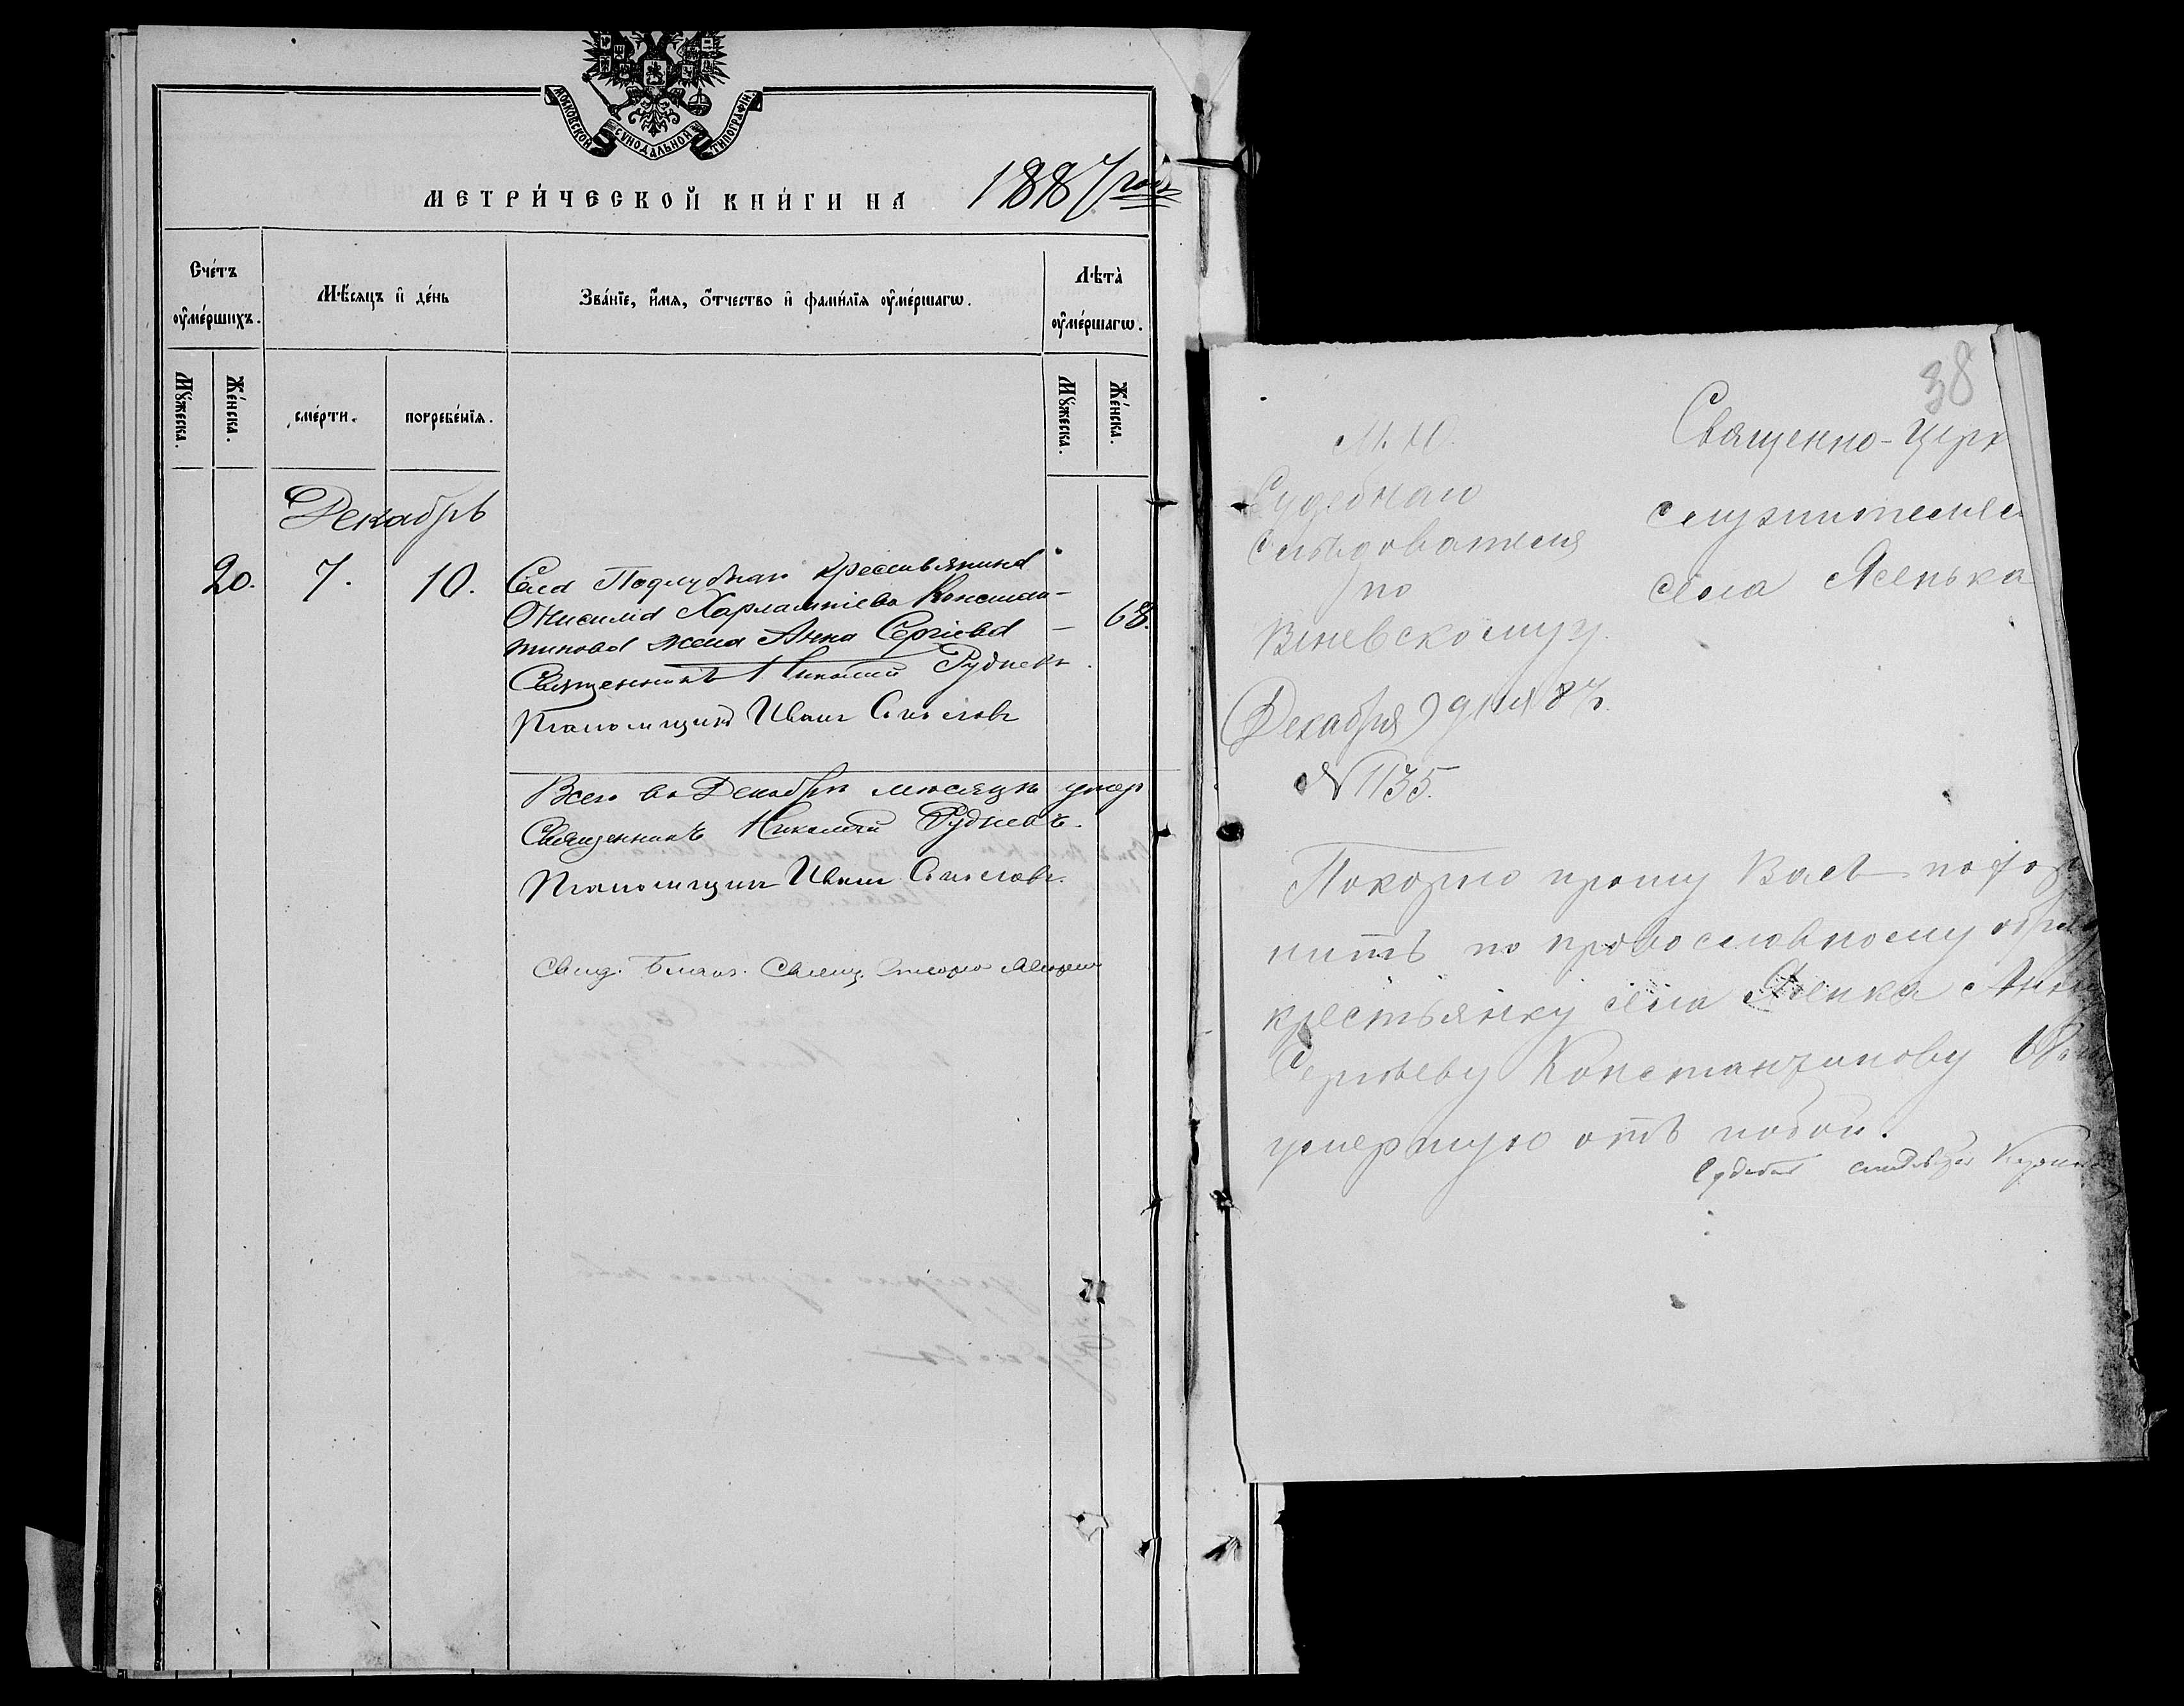 МОСКОВСКОЙ СѴНОДАЛЬНОЙ ТИПОГРАФІИ
МЕТРИ́ЧЕСКОЙ КНИ́ГИ НА 1887 годъ
Сче́тъ
ᲂу҆ме́ршихъ.
Мѣ́сяцъ и҆ де́нь
Зва́нїе, и҆́мя, ѻ҆́тчество и҆ фами́лїя ᲂу҆ме́ршагѡ.
Лѣта̀
ᲂу҆ме́ршагѡ.
Мꙋ́жеска.
Же́нска.
сме́рти.
погребе́нїя.
Мꙋ́жеска.
Же́нска.
Декабрь
20. 7. 10. Села Подлубнаго крестьянина
Онисима Харлампіева Констан-
тинова жена Анна Сергіева — 68.
Священникъ Николай Рудневъ.
Псаломщикъ Иванъ
Всего въ Декабрѣ мѣсяцѣ умер
Священникъ Николай Рудневъ.
Псаломщикъ Иванъ
38
М. Ю.
Судебнаго
Слѣдователя
по
Веневскому у.
Декабря 9 дня 87
№ 1135.
Священно-Церк
служителя
села Ясенька
Покорно прошу Васъ похоро
нить по провославному обря
крестьянку села Ясенка Анну
Сергѣеву Константинову
умершую отъ побои.
Судебный слѣдователь